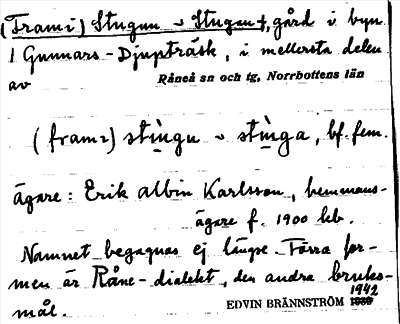 (Frami) Stugun ~ Stugan †, gård i byn
1 Gunnars-Djupträsk, i mellersta delen
av Råneå sn och tg, Norrbottens län
(fram2) stìngu ~ stìnga, bf. fem.
ägare: Erik Albin Karlsson, hemmans-
ägare f. 1900 kb.
Namnet begagnas ej längre. Förra for-
men är Råne-dialekt, den andra bruks-
mål.
EDVIN BRÄNNSTRÖM 1942